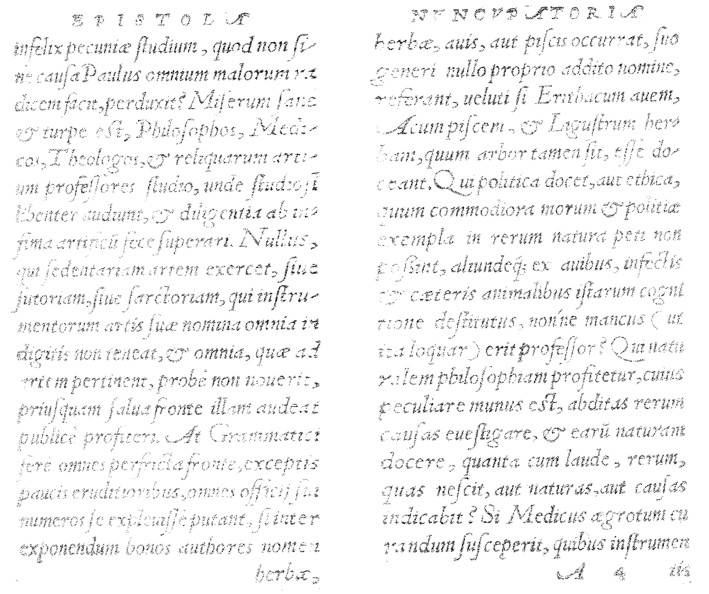 EPISTOLA
infelix pecuniæ ſtudium, quod non ſi-
ne cauſa Paulus omnium malorum ra
dicem facit, perduxit? Miſerum ſanè
& turpe eſt, Philoſophos, Medi-
cos, Theologos, & reliquarum arti-
um profeſſores ſtudio, unde ſtudioſi
libenter audiunt, & diligentia ab in-
fima artificũ fece ſuperari. Nullus,
qui ſedentariam artem exercet, ſiue
ſutoriam, ſiue ſarctoriam, qui inſtru-
mentorum artis ſuæ nomina omnia in
digitis non teneat, & omnia, quæ ad
artem pertinent, probè non nouerit,
priuſquam ſalua fronte illam audeat
publicè profiteri. At Grammatici
ferè omnes perfricta fronte, exceptis
paucis eruditioribus, omnes officij ſui
numeros ſe expleuiſſe putant, ſi inter
exponendum bonos authores nomen
herbæ,
NVNCVPATORIA
herbæ, auis, aut piſcis occurrat, ſuo
generi nullo proprio addito nomine,
referant, ueluti ſi Erithacum auem,
Acum piſcem, & Liguſtrum her-
bam, quum arbor tamen ſit, eſſe do-
ceant. Qui politica docet, aut ethica,
quum commodiora morum & politiæ
exempla in rerum natura peti non
poßint, aliundeq; ex auibus, inſectis
& cæteris animalibus iſtarum cogni
tione deſtitutus, nonne mancus (ut
ita loquar) erit profeſſor? Qui natu
ralem philoſophiam profitetur, cuius
peculiare munus eſt, abditas rerum
cauſas eueſtigare, & earũ naturam
docere, quanta cum laude, rerum,
quas neſcit, aut naturas, aut cauſas
indicabit? Si Medicus ægrotum cu
randum ſuſceperit, quibus inſtrumen
A 4 tis